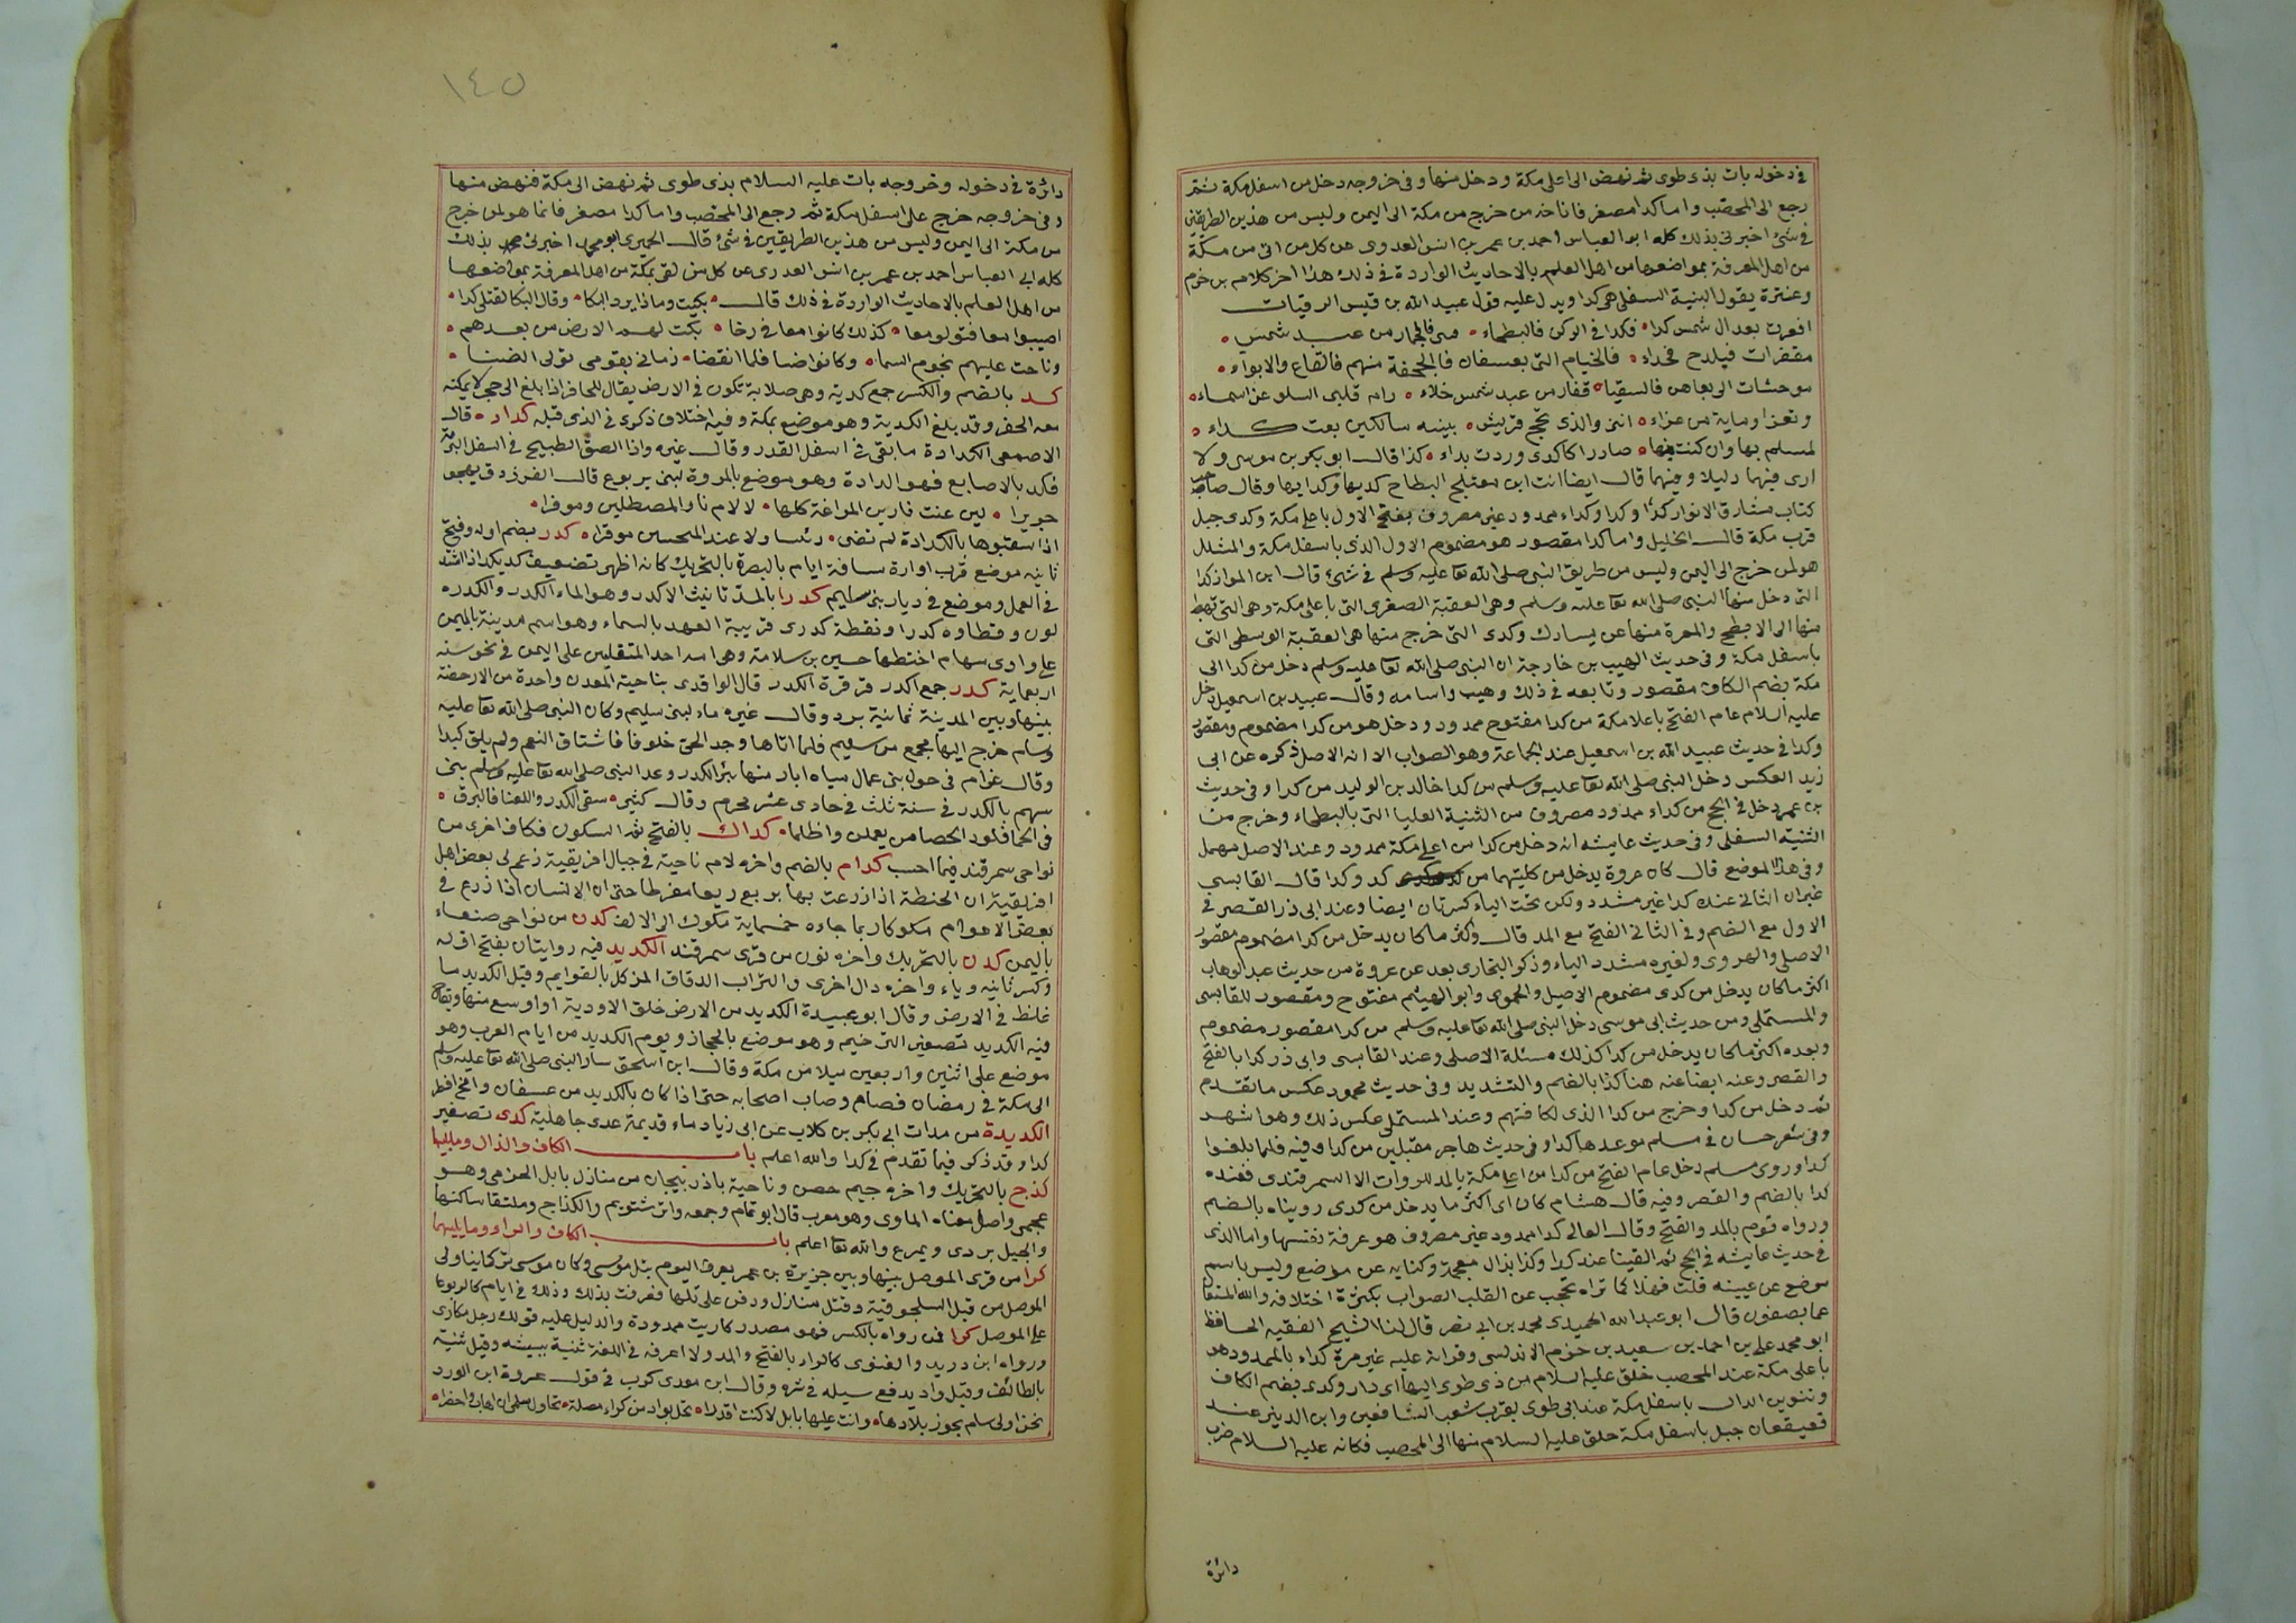 في دخوله بات بذى طوى ثم نهض الى اعلى مكة ودخل منها وفى خروجه دخل من اسفل مكة ثم
رجع الى المحصب واما كدا مصغر فانما خرج من مكة الى اليمن وليس من هذين الطريقين
في شئ اخبرنى بذلك كله ابو العباس احمد بن عمر بن انس العدوى عن كل من اتى من مكة
من اهل المعرفة بمواضعها من اهل العلم بالاحاديث الواردة في ذلك هذا اخر كلام بن حزم
وعنترة يقول البنية السفلى هى كدا ويدل عليه قول عبيد الله بن قيس الرقيات
اقفرت بعد ال شمس كدا فكدا فى الركن فالبطحاء منى فالجمار من عبد شمس
مقفرات فبلدح فحراء فالخيام التى بعسفان فالجحفة منهم فالقاع والابواء
موحشات الى تعاهن فالسقيا قفار من عبد شمس خلاء رام قلبى السلو عن اسماء
وتعزا وماية من عزاء اننى والذى تحج قريش بيته سالكين نعت كداء
لملم بها وان كنت منها صادرا كالذى وردت بداء كذا قال ابو بكر بن موسى ولا
ارى فيهما دليلا وفيهما قال ايضا انت ابن معتلج البطاح كديها وكدايها وقال صاحب
كتاب مشارق الانوار كدا وكدا وكداء ممدود غير مصروف بفتح الاول باعلى مكة وكدى جبل
قرب مكة قال الخليل واما كدا مقصور هو مضموم الاول الذى باسفل مكة والمشلل
هو لمن خرج الى اليمن وليس من طريق النبى صلى الله تعا عليه وسلم فى شئ قال ابن المواز كدا
التى دخل منها النبى صلى الله تعا عليه وسلم وهى العقبة الصغرى التى باعلى مكة وهى التى تهبط
منها الى الابطح والمقبرة منها عن يسارك وكدى التى خرج منها هى العقبة الوسطى التى
باسفل مكة وفى حديث الهيب بن خارجة ان النبى صلى الله تعا عليه وسلم دخل من كدا الى
مكة بضم الكاف مقصور وتابعه فى ذلك وهيب واسامه وقال عبيد بن اسمعيل دخل
عليه السلام عام الفتح باعلا مكة من كدا مفتوح ممدود ودخل هو من كدا مضموم ومقصور
وكدا فى حديث عبيد الله بن اسمعيل عند الجماعة وهو الصواب الا ان الاصل ذكره عن ابى
زيد العكس دخل النبى صلى الله تعا عليه وسلم من كدا خالد بن الوليد من كدا وفى حديث
بن عمر دخل فى الحج من كداء ممدود مصروف من الثنية العليا التى بالبطحاء وخرج من
الثنية السفلى وفى حديث عايشه انه دخل من كدا من اعلى مكة ممدود وعند الاصل مهمل
وفى هذا الموضع قال كان عروة يدخل من كليتهما من كد وكدا قال القابسى
غير ان الثانى عنده كدا غير مشدد ولكن تحت الياء كسرتان ايضا وعند ابى ذر القصر فى
الاول مع الضم وفى الثانى الفتح مع المد قال واكثر ما كان يدخل من كدا مضموم مقصور
الاصلى والهروى ولغيره مشدد الياء وذكر البخارى بعد عن عروة من حديث عبد الوهاب
اكثر ما كان يدخل من كدى مضموم الاصيل والحموى وابو الهيثم مفتوح ومقصور للقابسى
والمستملى ومن حديث ابى موسى دخل النبى صلى الله تعا عليه وسلم من كدا مقصور مضموم
وبعده اكثر ما كان يدخل من كدا كذلك مسئلة الاصلى وعند القابسى وابى ذر كدا بالفتح
والقصر وعنه ايضا عنه هنا كذا بالضم والتشديد وفى حديث محمود عكس ما تقدم
ثم دخل من كدا وخرج من كدا الذى لكافتهم وعند المستملى عكس ذلك وهو اشهد
وفى شعر حسان فى مسلم موعدها كدا وفى حديث هاجر مقبلين من كدا وفيه فلما بلغوا
كدا وروى مسلم دخل عام الفتح من كدا من اعلى مكة بالمد للروات الا السمرقندى فعنده
كدا بالضم والقصر وفيه قال هشام كان ابى اكثر ما يدخل من كدى رويناه بالضم
ورواه قوم بالمد والفتح وقال العالى كدا ممدود غير مصروف هو عرفة نفسها واما الذى
فى حديث عايشه فى الحج ثم القينا عند كدا وكذا بذال معجمة وكنايه عن موضع وليس باسم
موضع عن عيينه قلت فهذا كما تراه يحجب عن القلب الصواب بكثرة اختلافه والله المستعان
عما يصفون قال ابو عبد الله الحميدى محمد بن ابى نصر قال لنا الشيخ الفقيه الحافظ
ابو محمد على بن احمد بن سعيد بن حزم الاندلسى وقرانه عليه غير مرة كداء بالمد هو
باعلى مكة عند المحصب خلق عليه السلام من ذى طوى اليها اى دار وكدى بضم الكاف
وتنوين الدال باسفل مكة عند ابى طوى بقرب شعب الشافعين وابن الدينر عند
قعيقعان جبل باسفل مكة حلق عليه السلام منها الى المحصب فكانه عليه السلام ضرب
دائرة
١٤٥
دائرة فى دخوله وخروجه بات عليه السلام بذى طوى ثم نهض الى مكة فنهض منها
وفى خروجه خرج على اسفل مكة ثم رجع الى المحصب واما كدا مصغر فانما هو لمن خرج
من مكة الى اليمن وليس من هذين الطريقين فى شئ قال الحميرى ابو محمد اخبرنى بذلك
كله ابى العباس احمد بن عمر بن انس العدرى عن كل من لقى بمكة من اهل المعرفة بمواضعها
من اهل العلم بالاحاديث الواردة فى ذلك قال بكيت وماذا يرد البكا وقال البكا لقتلى كدا
اصيبوا معا فتولو معا كذلك كانوا معا فى رخا بكت لهم الارض من بعدهم
وناحت عليهم نجوم السما وكانوا ضيا فلما انقضا زمانى بقومى تولى الضيا
كد بالضم والكسر جمع كدية وهى صلابة تكون فى الارض يقال للحافر اذا بلغ الى حجر لا يمكنه
معه الحفر وقد بلغ الكدية وهو موضع بمكة وفيه اختلاف ذكرى فى الذى قبله كداد قال
الاصمعى الكدادة ما بقى فى اسفل القدر وقال غيره واذا الصق الطبيخ فى اسفل البرمة
فكد بالاصابع فهو الدادة وهو موضع بالمروة لبنى يربوع قال الفرزدق يهجو
جريرا لين عنت نارس المراغة كلها لالام نار المصطلين وموفرا
اذا سقتوها بالكدادة لم تضى رئسا ولا عند المحسن موقرا كدر بضم اوله وفتح
ثانيه موضع قرب اوارة مسافة ايام بالبصرة بالتحريك كانه اظهر تضعيف كد يكد اذا اشتد
فى العمل وموضع فى ديار بنى سليم كدرا بالمد تانيث الاكدر وهو الماء الكدر والكدره
لون وقطاوه كدرا ونقطة كدرى قريبة العهد بالسماء وهو اسم مدينة باليمن
على وادى سهام اختطها حسين بن سلامة وهى احد المتغلبين على اليمن فى نحو سنه
اربعماية كدر جمع اكدر قرقرة الكدر قال الواقدى بناحية المعدن واحدة من الارحضة
بينها وبين المدينة ثمانية برد وقال غيره ماء لبنى سليم وكان النبى صلى الله تعا عليه
وسلم خرج اليها لجمع من سليم فلما اتاها وجد الحى خلوفا فاشتاق النعم ولم يلق كيدا
وقال عزام فى حول بنى عمال مياه ابار منها بئر الكدر وعد النبى صلى الله تعا عليه وسلم بنى
سهم بالكدر فى سنة ثلث فى حادى عشر محرم وقال كثير سقى الكدر واللعنا فالبرق
فى الحما فلود الحصا من يعملن واظلما كداك بالفتح ثم السكون فكاف اخرى من
نواحى سمرقند فيما احسب كدام بالضم واخره لام ناحية فى جبال افريقية زعم لى بعض اهل
افريقية ان الحنطة اذا زرعت بها بربع ربعا مفرطا حتى ان الانسان اذا زرع فى
بعض الاهوام مكوكا ربما جاءه خمسماية مكوك الى الالف كدن من نواحى صنعاء
باليمن كدن بالتحريك واخره نون من قرى سمرقند الكديد فيه روايتان بفتح اوله
وكسر ثانيه وياء واخره دال اخرى والتراب الدقاق المركل بالقوايم وقيل الكديد ما
غلظ فى الارض وقال ابو عبيدة الكديد من الارض خلق الاودية او اوسع منها ويقال
فيه الكديد تصغير الترخيم وهو موضع بالحجاز ويوم الكديد من ايام العرب وهو
موضع على اثنين واربعين ميلا من مكة وقال ابن اسحق سار النبى صلى الله تعا عليه وسلم
الى مكة فى رمضان فصام وصاب اصحابه حتى اذا كان بالكديد من عسفان وامج افطر
الكديدة من مدات ابى بكر بن كلاب عن ابى زياد ماء قديمة عدى جاهلية كدى تصغير
كدا وقد ذكر فيما تقدم فى كدا والله اعلم باب الكاف والذال وما يليها
كذج بالتحريك واخره جيم حصن وناحية باذربيجان من منازل بابل الحزمى وهو
عجمى واصل معناه الماوى وهو معرب قال ابو تمام وجمعه وابرشتويم والكذاج وملتقا ساكنها
والجيل بردى ويمرع والله تعا اعلم باب الكاف والراو وما يليهما
كرا من قرى الموصل بينها وبين جزيرة بن عمر يعرف اليوم بتل موسى وكان موسى تركمانيا ولى
الموصل من قبل السلجوقية وقتل منازل ودفن على تلها فعرفت بذلك وذلك فى ايام كالربوعا
على الموصل كرا فمن رواه بالكسر فهو مصدر كاريت ممدودة والدليل عليه قولك رجل مكارى
ورواه ابن دريد والغنوى كالراء بالفتح والمد ولا اعرفه فى اللغة ثنية ببيشه وقيل ثنية
بالطائف وقيل واد يدفع سيله فى تربه وقال ابن معدى كرب فى قول عروة ابن الورد
نحن اولى سلم بجوز بلادها وانت عليها بابل لا كنت اقدرا تحل بواد من كراء مضلة تحاول سلمى ان اهاب واحضرا